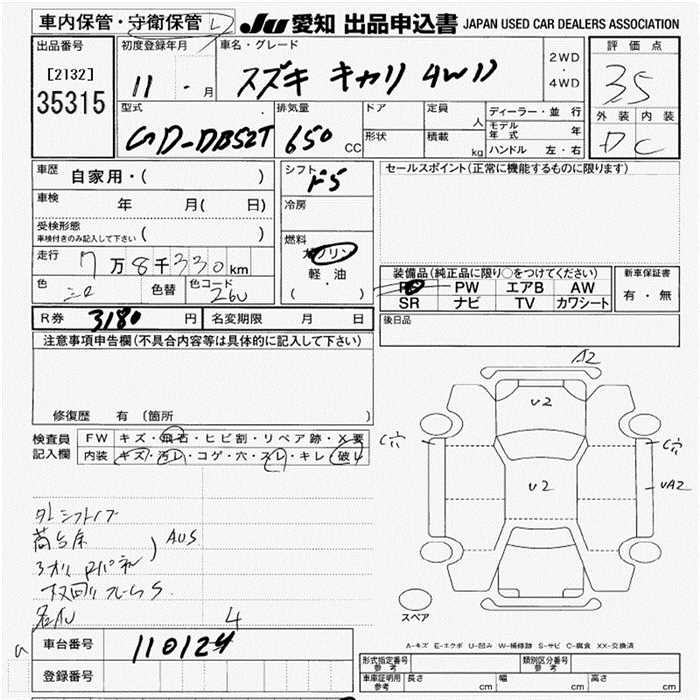 車内保管・守衛保管 L
JU 愛知 出品申込書 JAPAN USED CAR DEALERS ASSOCIATION
出品番号
[2132]
35315
初度登録年月
11 ・ 月
車名・グレード
スズキ キャリ 4WD
2WD
・
4WD
評価点
35
外装 内装
D C
型式
GD-DB52T
排気量
650 CC
ドア
形状
定員 人
積載 kg
ディーラー・並行
モデル年式 年
ハンドル 左・右
車歴
自家用・( )
車検 年 月( 日)
受検形態
車検付きのみ記入して下さい ( )
走行 7万8千330km
色
色替
色コード
26U
シフト
F5
冷房
燃料
ガソリン
軽油
( )
セールスポイント(正常に機能するものに限ります)
装備品(純正品に限り○をつけてください)
PS PW エアB AW
SR ナビ TV カワシート
新車保証書
有・無
後日品
R券 3180 円 名変期限 月 日
注意事項申告欄(不具合内容等は具体的に記入して下さい)
修復歴 有 (箇所 )
検査員
記入欄
FW キズ・飛石・ヒビ割・リペア跡・X要
内装 キズ・汚レ・コゲ・穴・スレ・キレ・破レ
AUS
4
A2
U2
C穴
C穴
U2
UA2
スペア
A-キズ E-エクボ U-凹み W-補修跡 S-サビ C-腐食 XX-交換済
車台番号 110124
登録番号
形式指定番号
参考
類別区分番号
参考
車庫証明用
参考
長さ cm 幅 cm 高さ cm